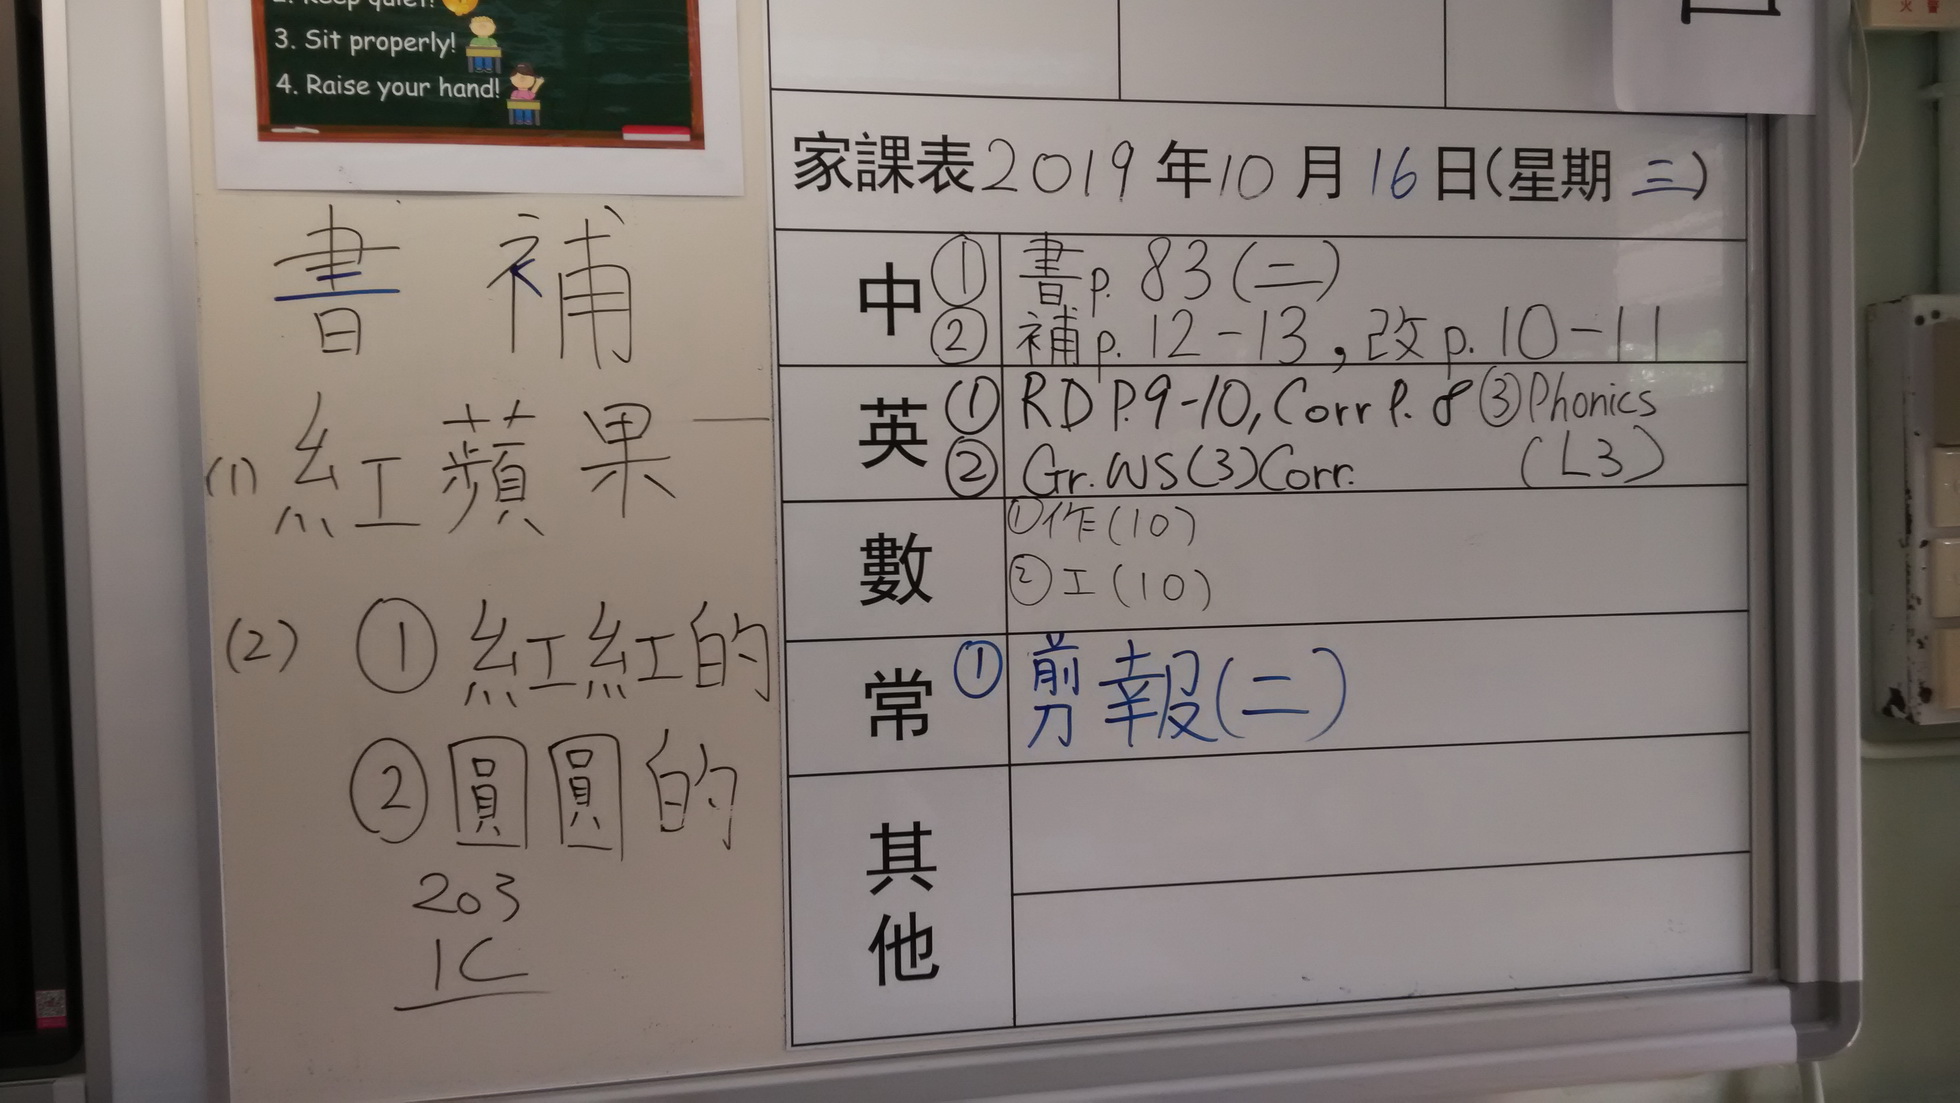 2. Keep quiet!
3. Sit properly!
4. Raise your hand!
書 補
(1) 紅蘋果一
(2) ① 紅紅的
② 圓圓的
203
1C
家課表2019年10月16日(星期三)
中 ① 書p. 83(二)
② 補p. 12-13,改p. 10-11
英 ① RD P.9-10, Corr P. 8 ③ Phonics
② Gr. WS(3)Corr. (L3)
數 ①作(10)
②工(10)
常 ① 剪報(二)
其他
火警